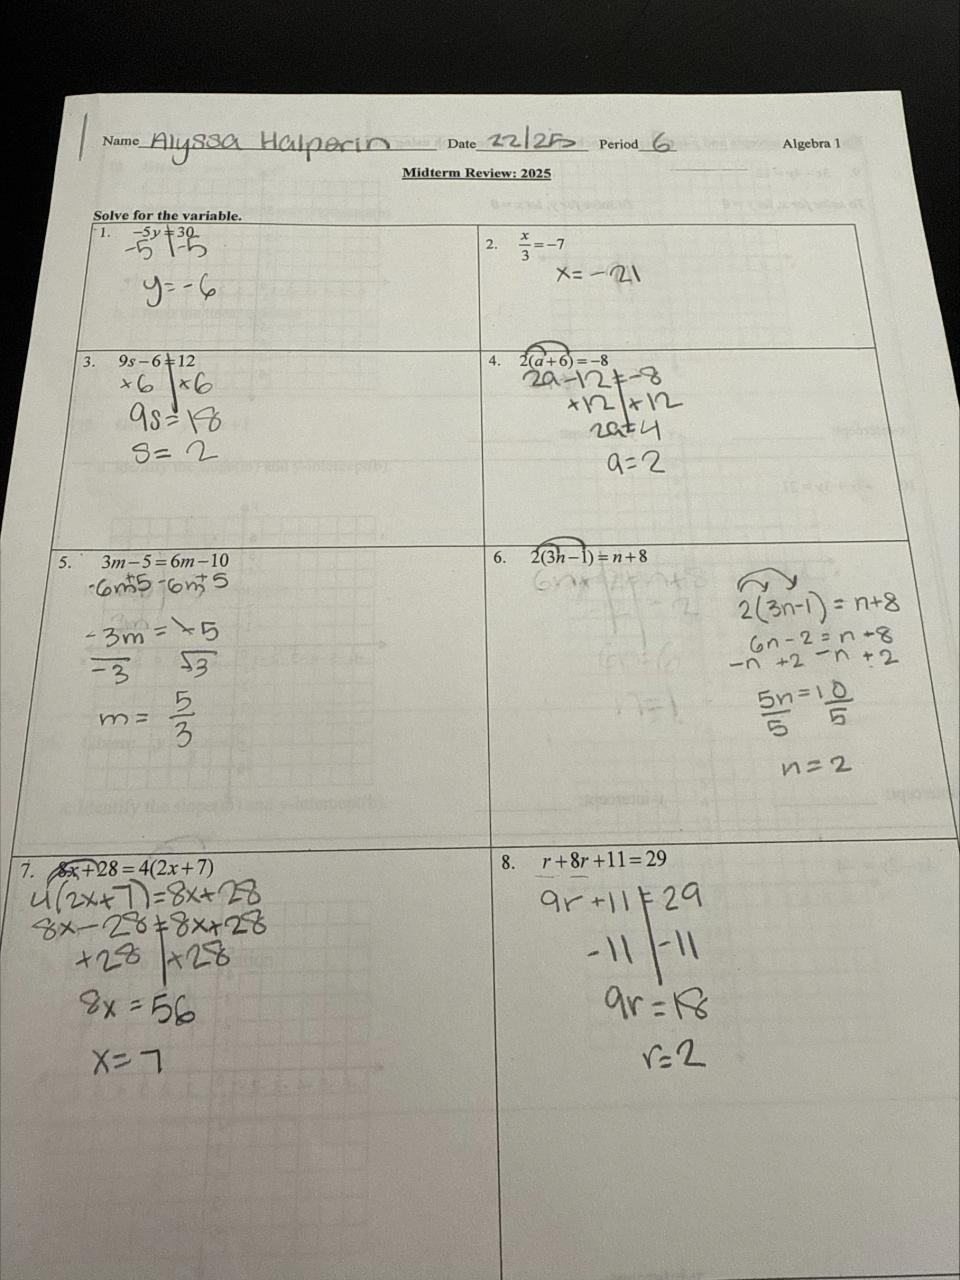 Name Alyssa Halperin Date 22/25 Period 6 Algebra 1
Midterm Review: 2025
Solve for the variable.
1. -5y = 30
-5 | -5
y = -6
2. x/3 = -7
x = -21
3. 9s - 6 = 12
+6 | +6
9s = 18
s = 2
4. 2(a + 6) = -8
2a - 12 = -8
+12 | +12
2a = 4
a = 2
5. 3m - 5 = 6m - 10
-6m +5 -6m +5
-3m = -5
-3 -3
m = 5/3
6. 2(3n - 1) = n + 8
2(3n-1) = n+8
6n - 2 = n + 8
-n +2 -n +2
5n = 10
5 5
n = 2
7. 8x + 28 = 4(2x + 7)
4(2x+7) = 8x+28
8x - 28 = 8x+28
+28 | +28
8x = 56
x = 7
8. r + 8r + 11 = 29
9r + 11 = 29
-11 | -11
9r = 18
r = 2